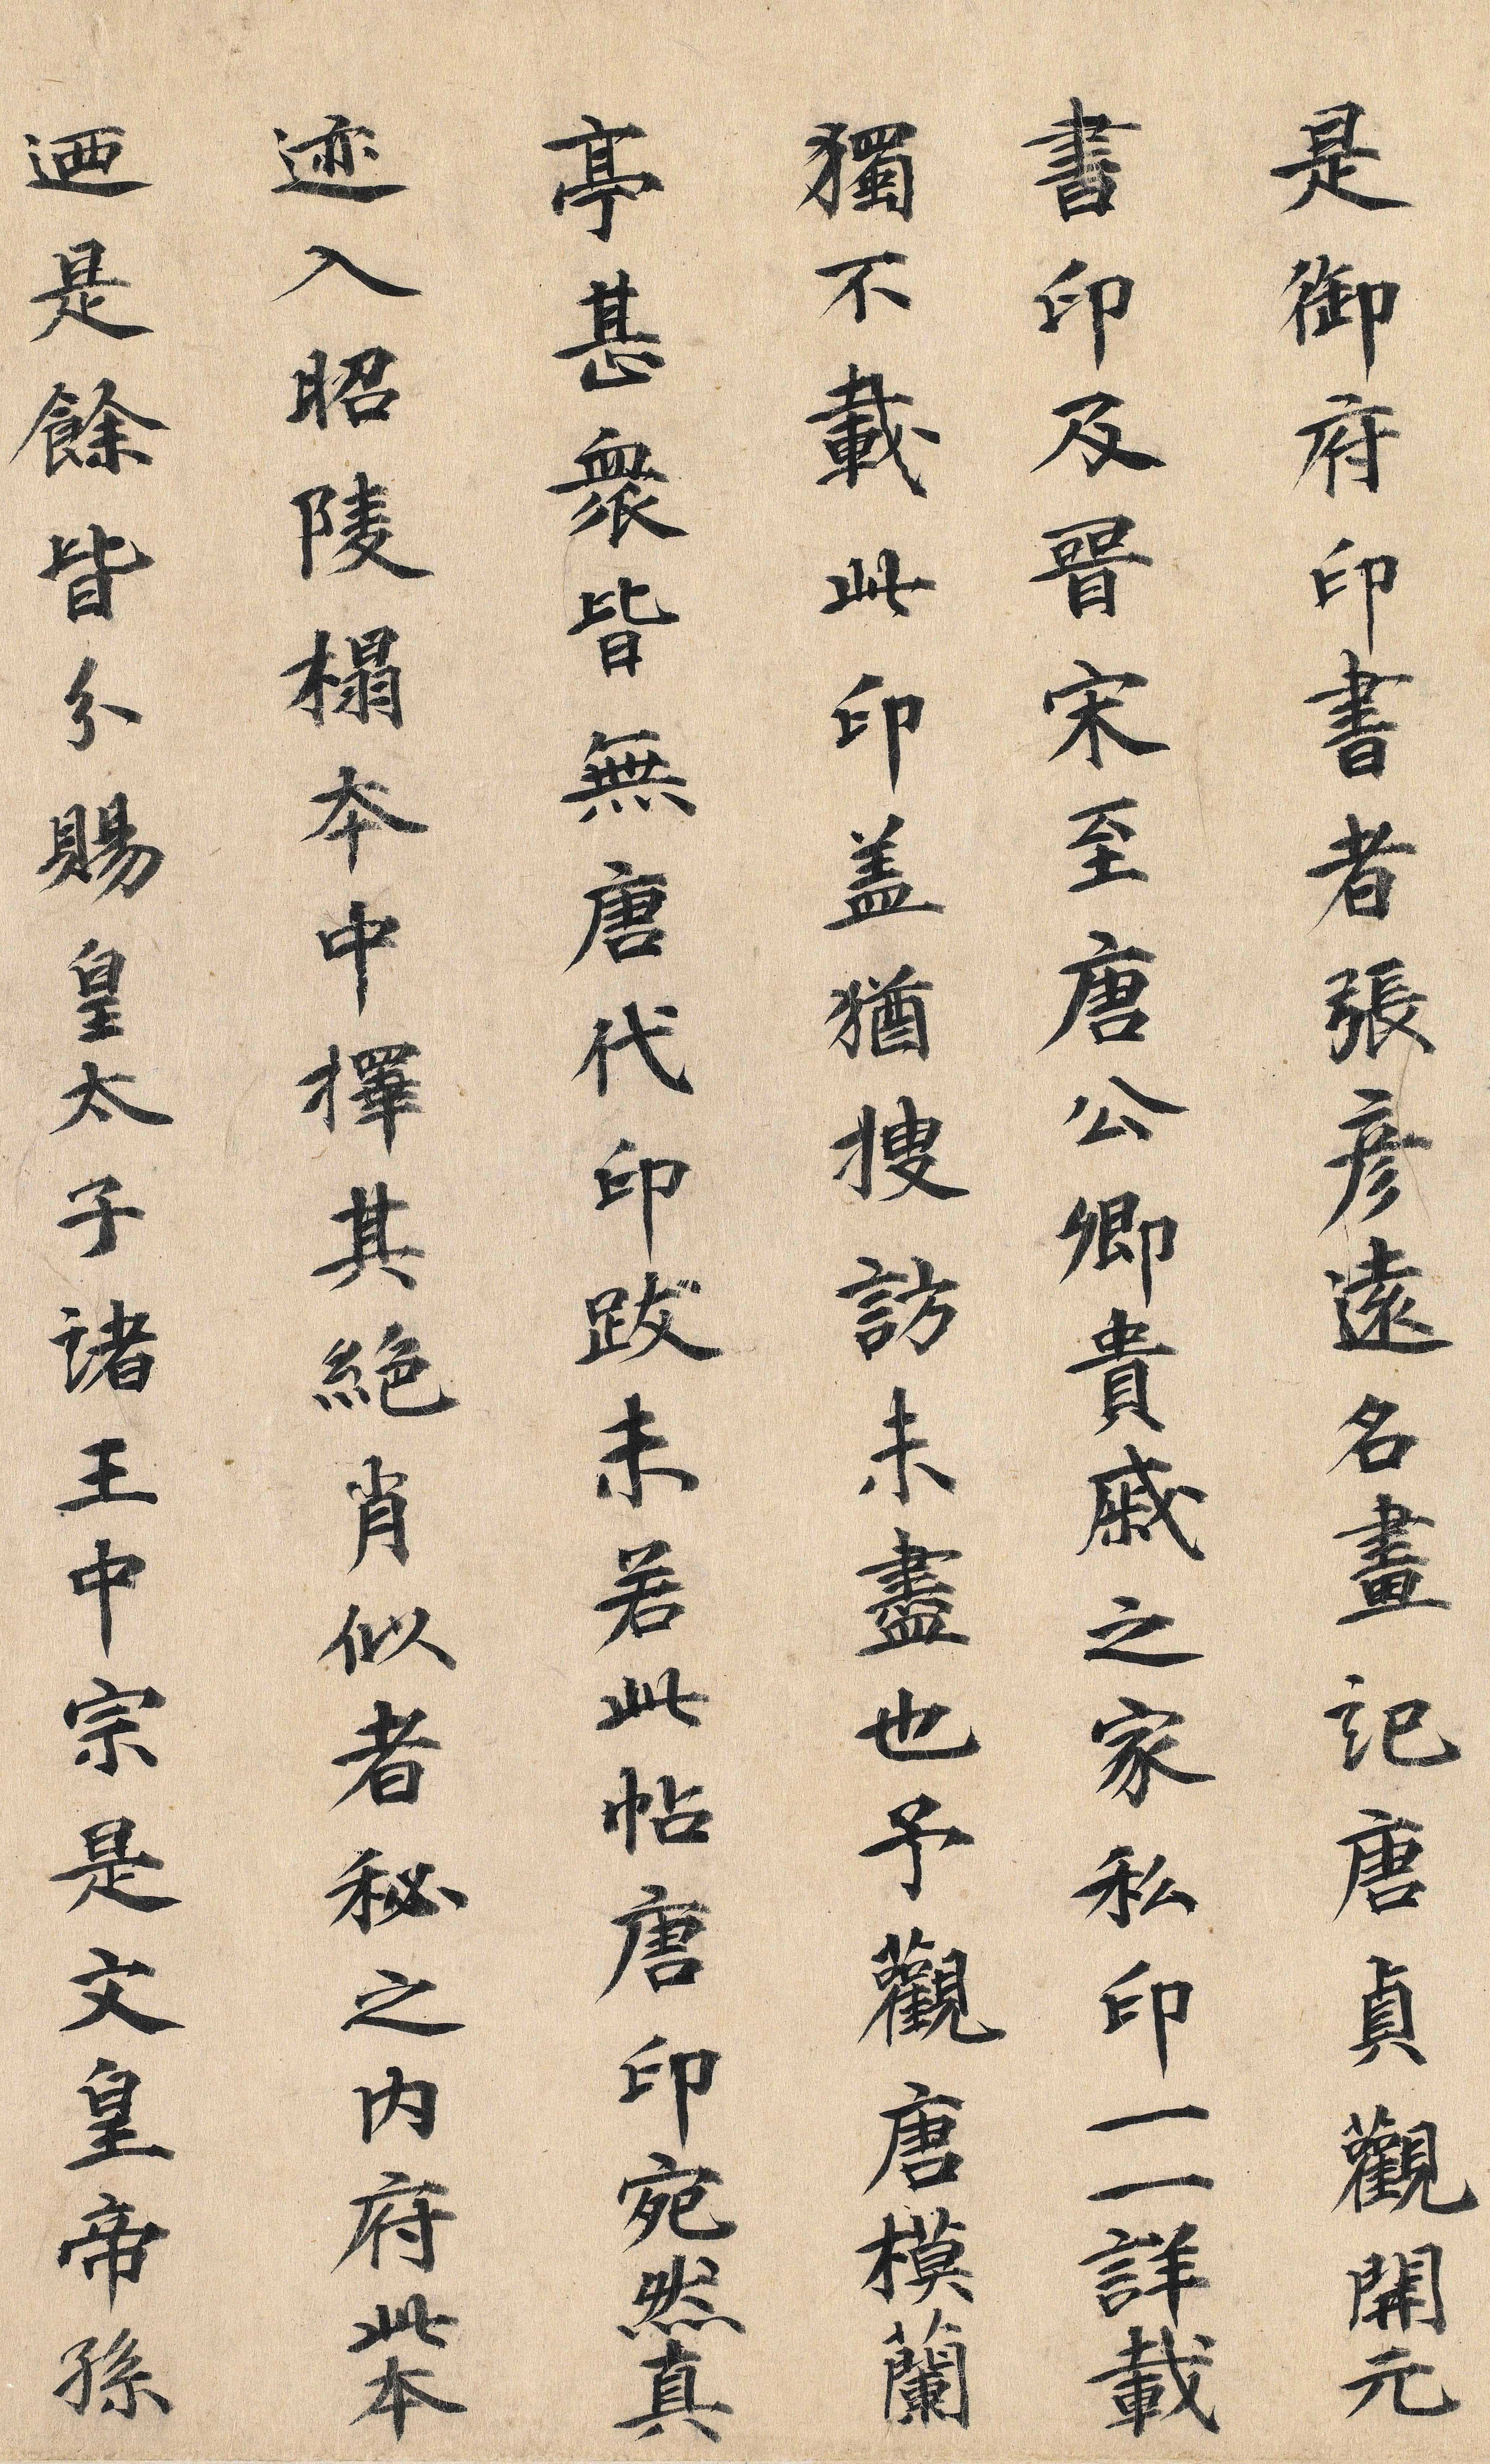 是御府印書者張彥遠名畫記唐貞觀開元
書印及晉宋至唐公卿貴戚之家私印一一詳載
獨不載此印盖猶搜訪未盡也予觀唐模蘭
亭甚衆皆無唐代印跋未若此帖唐印宛然真
迹入昭陵榻本中擇其絕肖似者秘之內府此本
迺是餘皆分賜皇太子諸王中宗是文皇帝孫